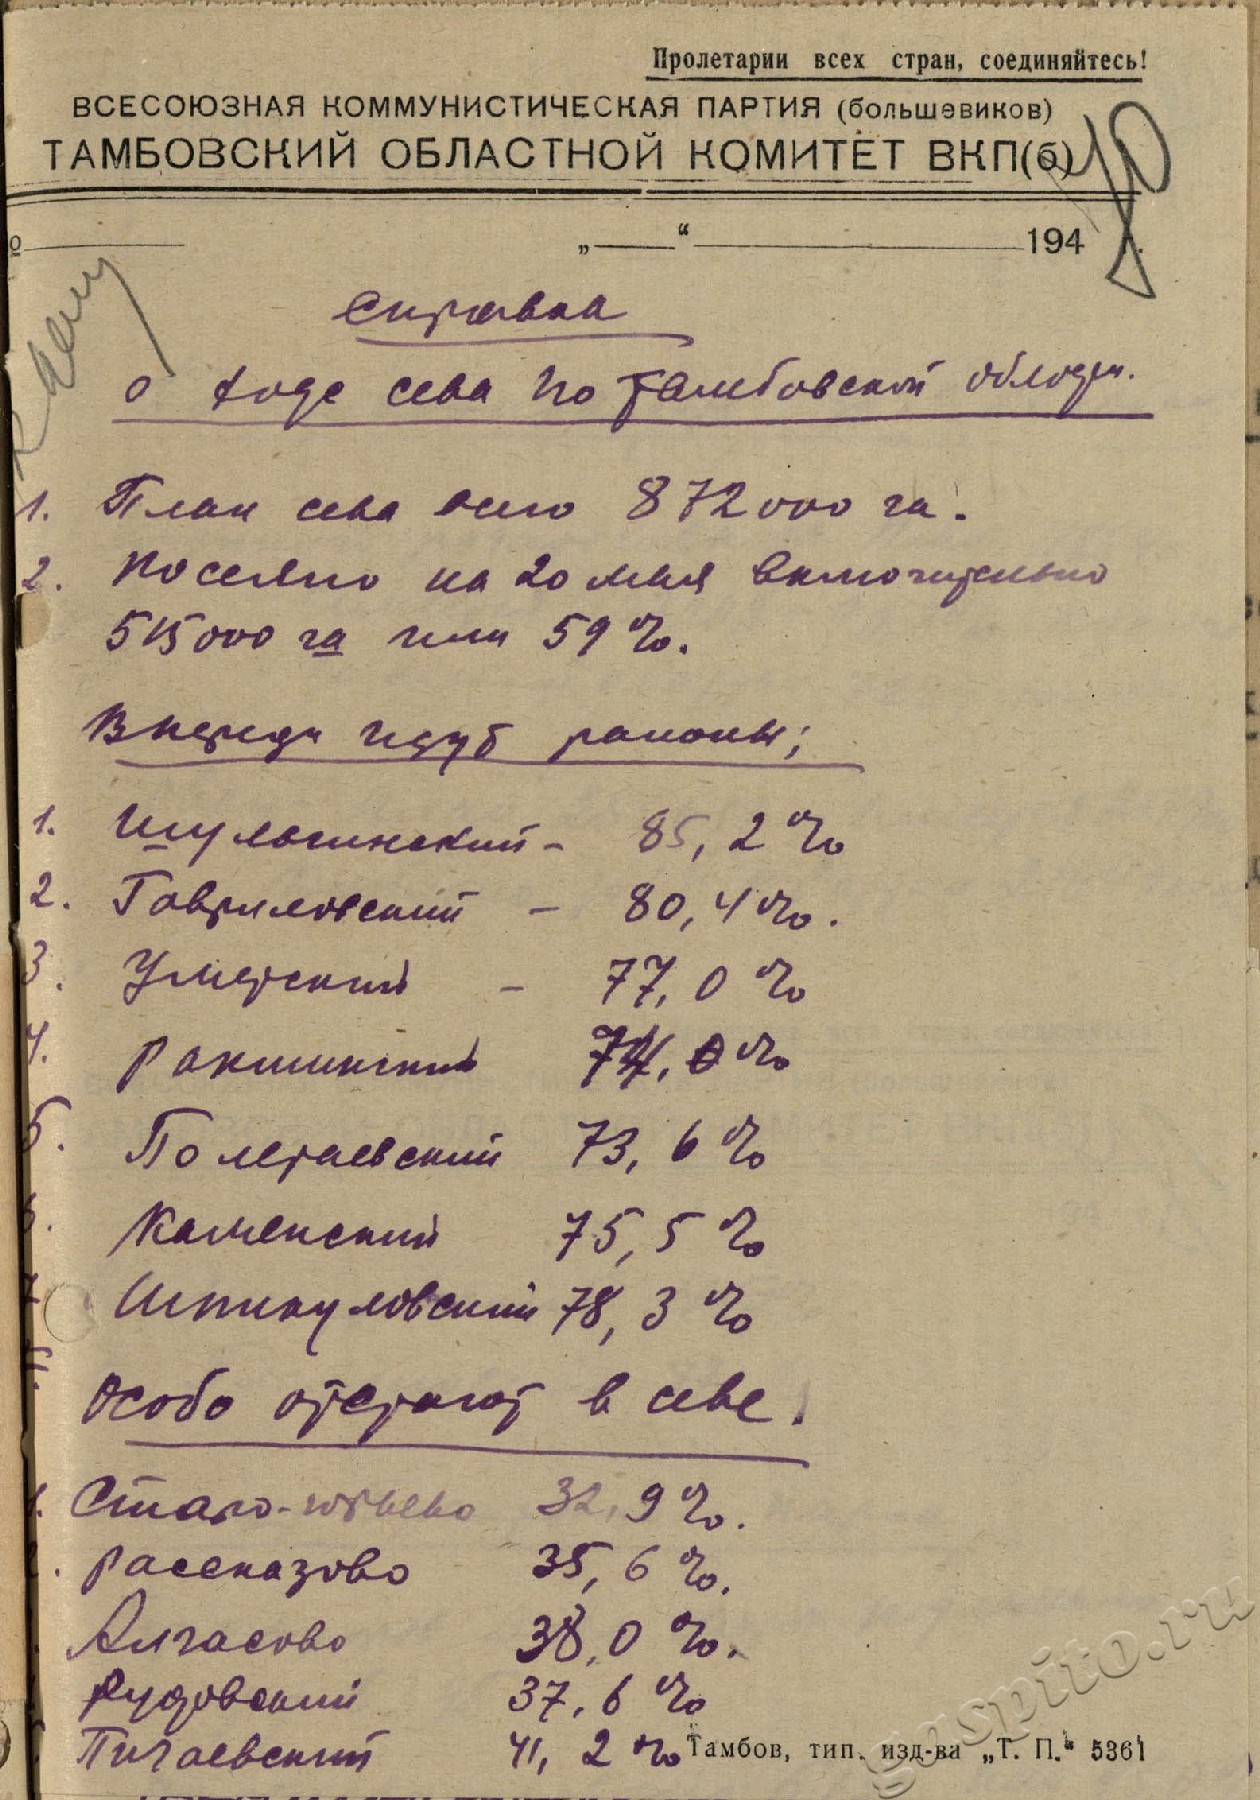 Пролетарии всех стран, соединяйтесь!
ВСЕСОЮЗНАЯ КОММУНИСТИЧЕСКАЯ ПАРТИЯ (большевиков)
ТАМБОВСКИЙ ОБЛАСТНОЙ КОМИТЕТ ВКП(б)
„ “ 194
Справка
о ходе сева по Тамбовской области.
1. План сева всего 872000 га.
2. Посеяно на 20 мая включительно
515000 га или 59%.
Впереди идут районы;
1. Шульгинский - 85,2%
2. Гавриловский - 80,4%.
3. Уметский - 77,0%
4. Ракшинский 74,0%
5. Полетаевский 73,6%
6. Каменский 75,5%
7. Шпикуловский 78,3%
Особо отстают в севе.
1. Старо-Юрьево 32,9%.
2. Рассказово 35,6%.
Алгасово 38,0%.
Рудовский 37,6%
Пичаевский 41,2%
Тамбов, тип. изд-ва „Т. П.“ 5361
gaspito.ru